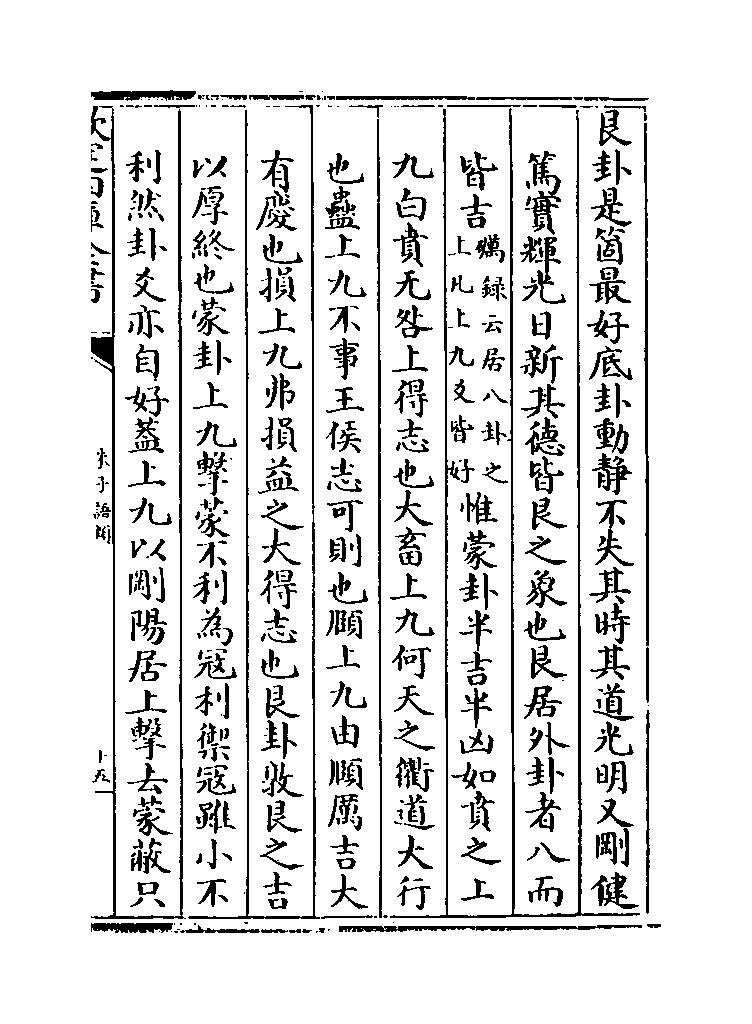 艮卦是箇最好底卦動静不失其時其道光明又剛健
篤實輝光日新其德皆艮之象也艮居外卦者八而
皆吉礪録云居八卦之上凡上九爻皆好惟蒙卦半吉半凶如賁之上
九白賁无咎上得志也大畜上九何天之衢道大行
也蠱上九不事王侯志可則也頤上九由頤厲吉大
有慶也損上九弗損益之大得志也艮卦敦艮之吉
以厚終也蒙卦上九擊蒙不利為冦利禦冦雖小不
利然卦爻亦自好葢上九以剛陽居上擊去蒙蔽只
欽定四庫全書
朱子語類
十五